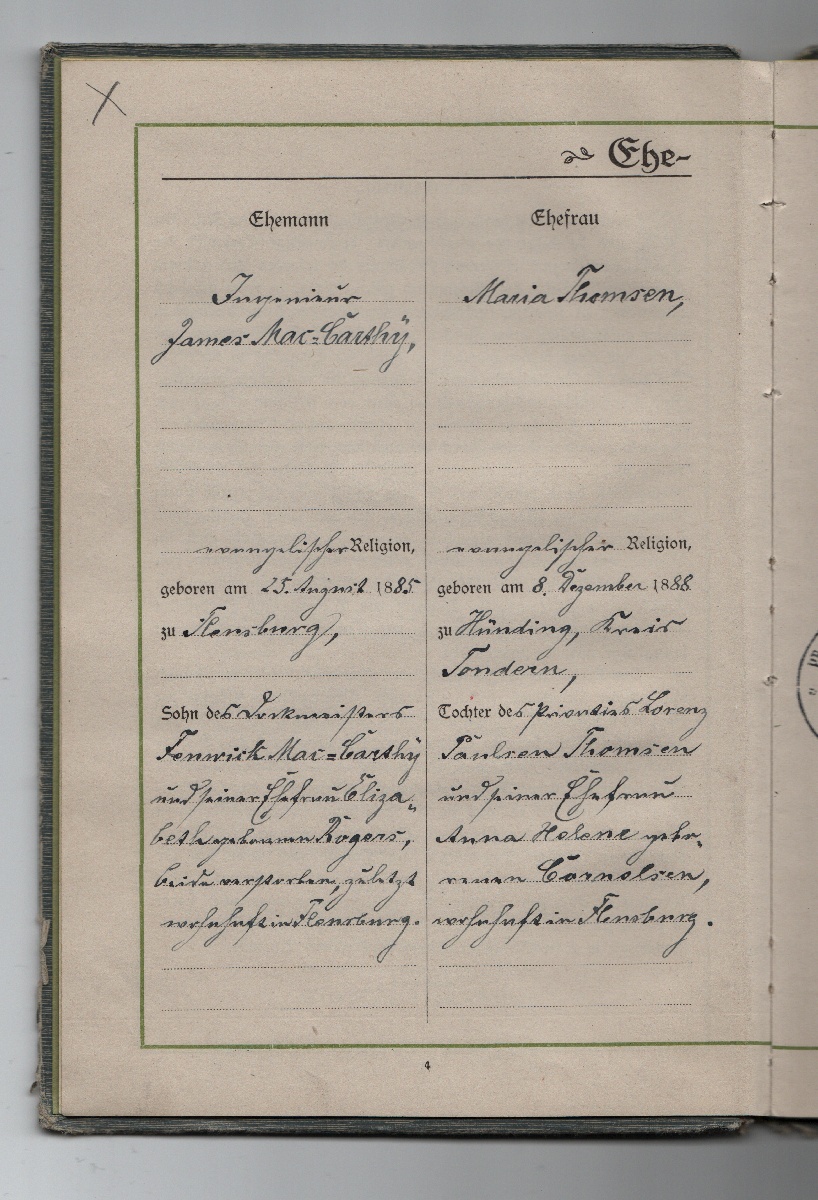 Ehe-
Ehemann
Ingenieur
James Mac=Carthÿ,
evangelischer Religion,
geboren am 25. August 1885
zu Flensburg,
Sohn des Dockmeisters
Fenwick Mac=Carthy
und seiner Ehefrau Eliza„
beth geborenen Rogers,
beide verstorben, zuletzt
wohnhaft in Flensburg.
Ehefrau
Maria Thomsen,
evangelischer Religion,
geboren am 8. Dezember 1888
zu Hünding, Kreis
Tondern,
Tochter des Privatiers Lorenz
Paulsen Thomsen
und seiner Ehefrau
Anna Helene gebo„
renen Cornelsen,
wohnhaft in Flensburg.
4